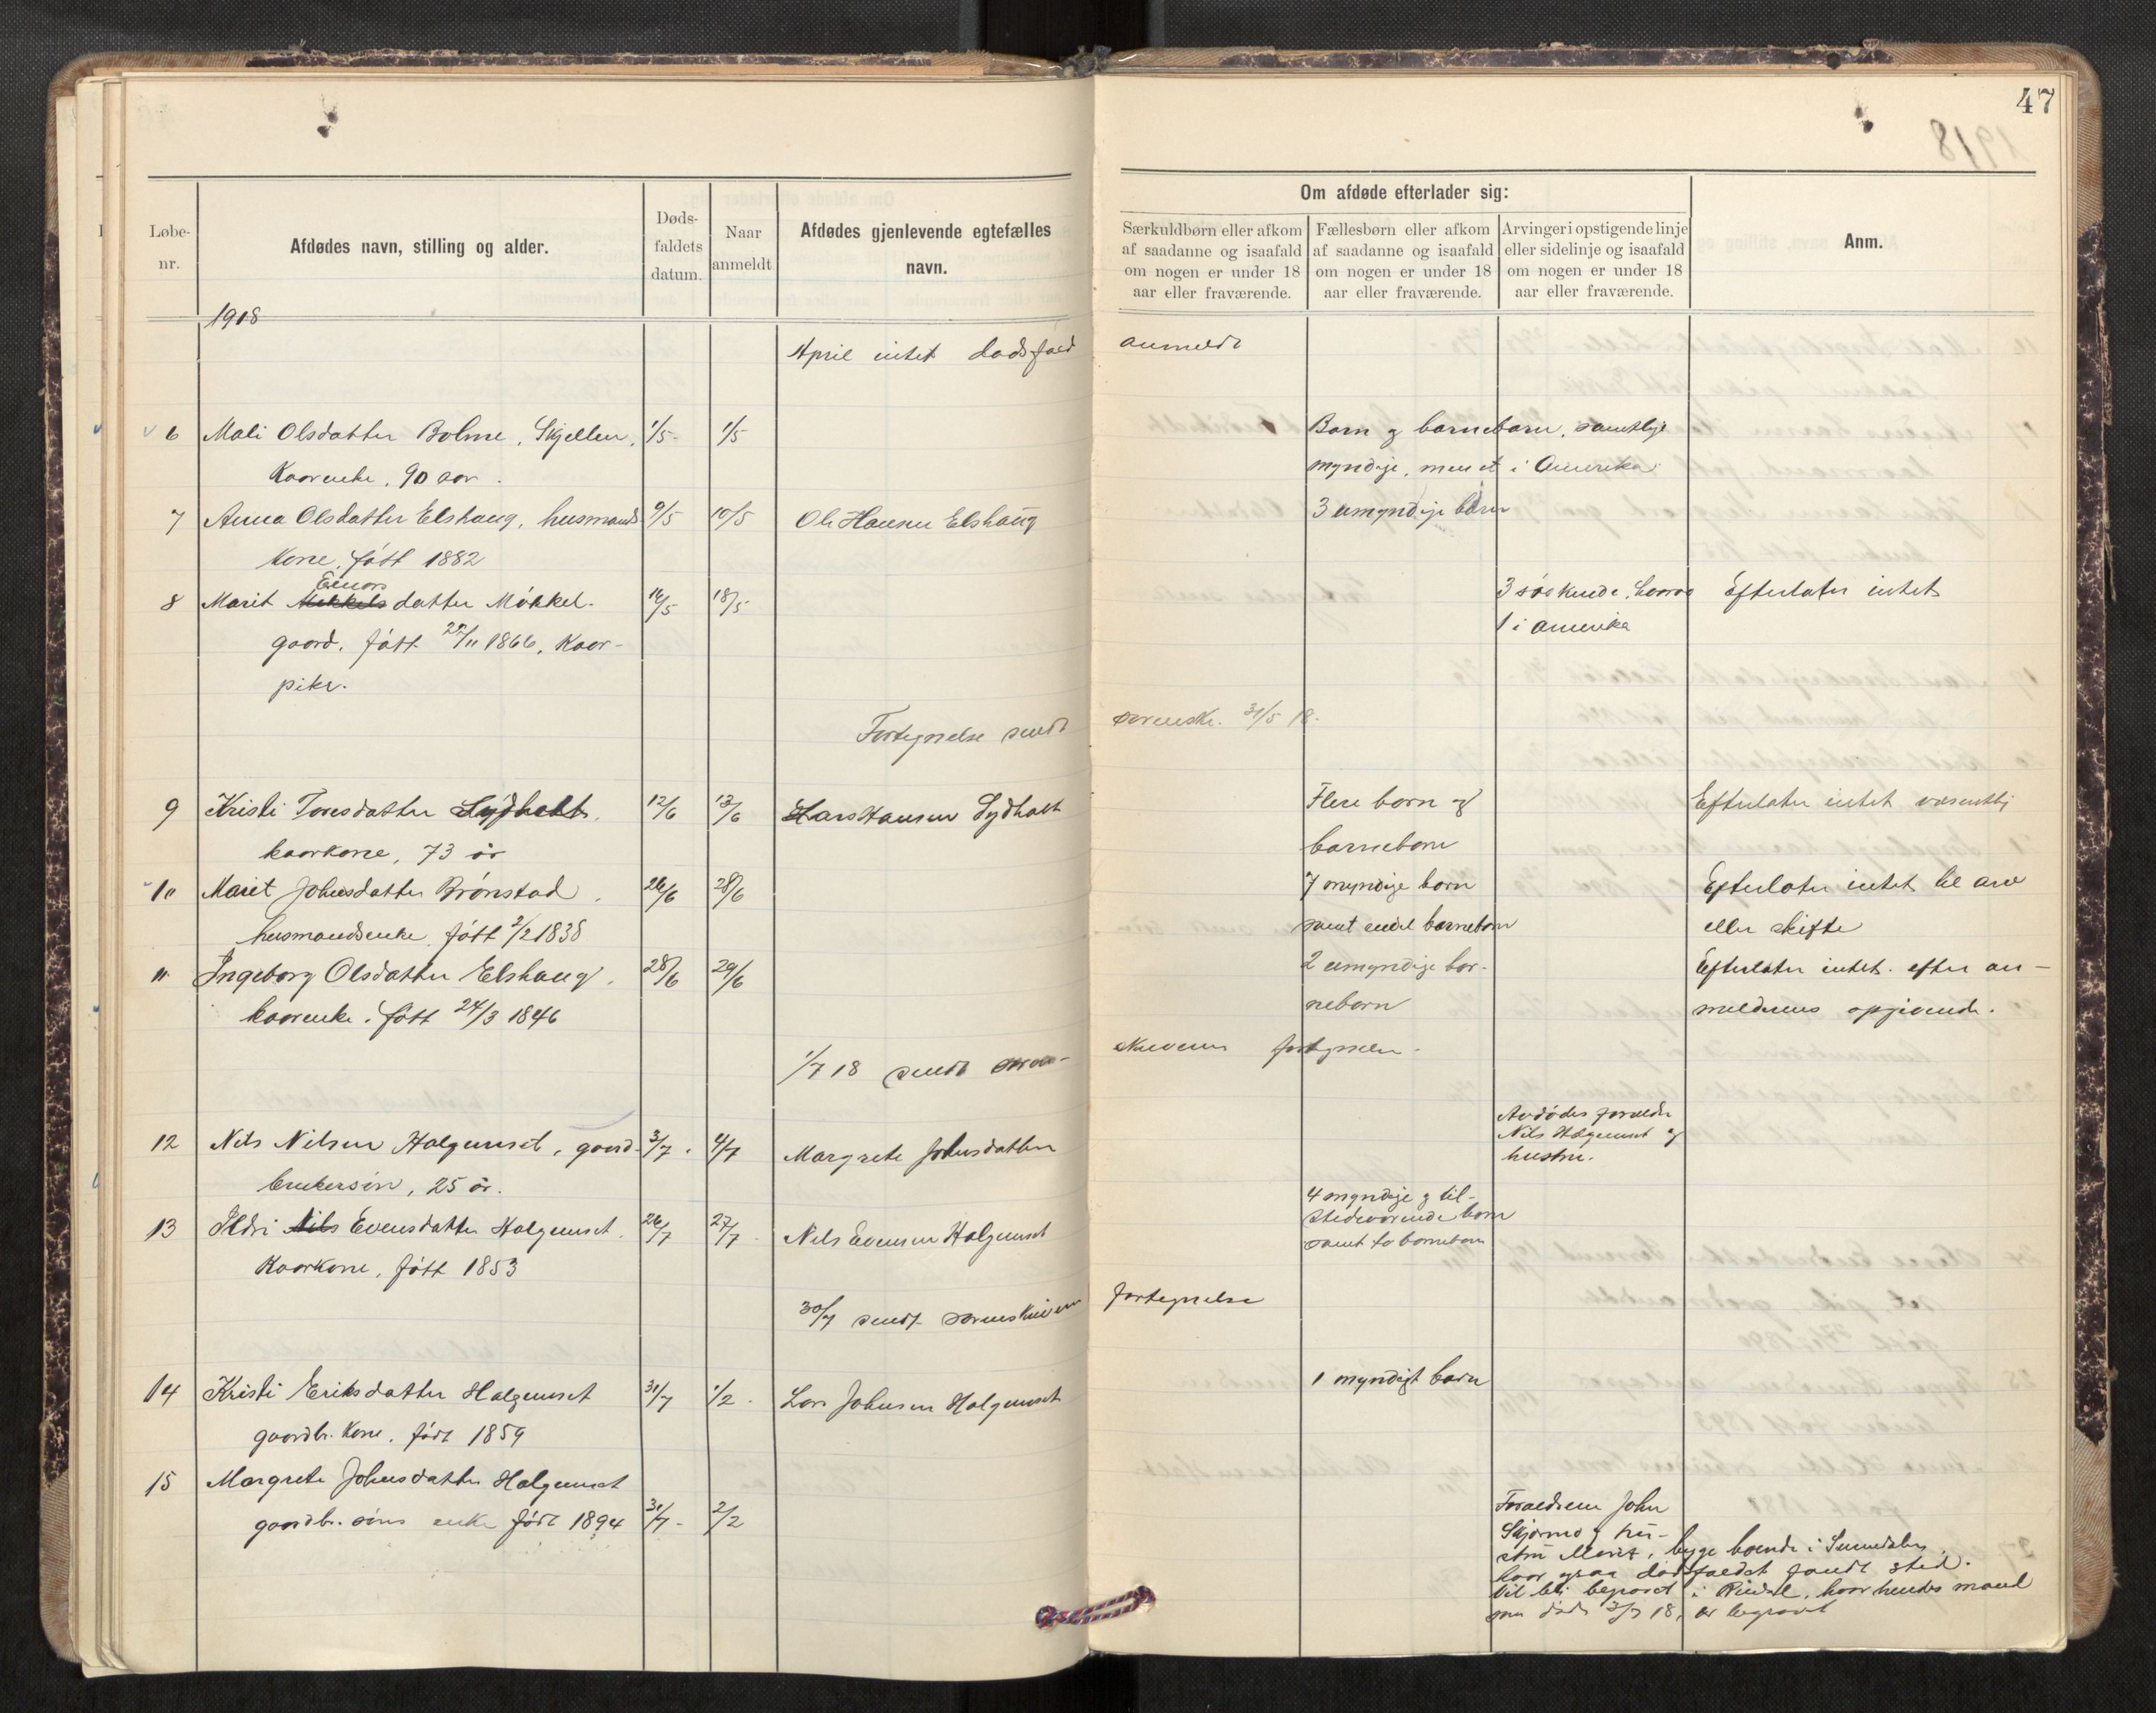 47
1918
Løbe-
nr.
Afdødes navn, stilling og alder.
Døds-
faldets
datum.
Naar
anmeldt
Afdødes gjenlevende egtefælles
navn.
Om afdøde efterlader sig:
Særkuldbørn eller afkom
af saadanne og isaafald
om nogen er under 18
aar eller fraværende.
Fællesbørn eller afkom
af saadanne og isaafald
om nogen er under 18
aar eller fraværende.
Arvinger i opstigende linje
eller sidelinje og isaafald
om nogen er under 18
aar eller fraværende.
Anm.
1918
April intet dødsfald anmeldt
6 Mali Olsdatter Bolme, Skjellen, 1/5 1/5 Børn og barnebørn, samtlige
Kaarenke, 90 aar. myndige, men et i Amerika
7 Anna Olsdatter Elshaug, husmands 9/5 10/5 Ole Hansen Elshaug 3 umyndige børn
kone, født 1882
8 Marit Einars Mikkels datter Møkkel- 16/5 18/5 3 søskende, hvorav Efterlater intet
gaard, født 22/11 1866, Kaar- 1 i Amerika
pike.
Fortegnelse sendt sorenskr. 31/5 18.
9 Kristi Toresdatter Sydhalt, 12/6 13/6 Lars Hansen Sydhalt Flere børn og Efterlater intet væsentlig
kaarkone, 73 år barnebørn
10 Marit Johnsdatter Brønstad, 26/6 28/6 7 myndige børn Efterlater intet til arv
husmandsenke, født 2/2 1838 samt endel barnebørn eller skifte
11 Ingeborg Olsdatter Elshaug, 28/6 29/6 2 umyndige bar- Efterlater intet efter an-
kaarenke, født 24/3 1846 nebørn melderens opgivende.
1/7 18 sendt soren- skriveren fortegnelse.
12 Nils Nilsen Halgunset, gaard- 3/7 4/7 Margrete Johnsdatter Avdødes forældre
Nils Halgunset og
hustru.
brukersøn, 25 år.
13 Ildri Nils Evensdatter Halgunset, 26/7 27/7 Nils Evensen Halgunset 4 myndige og til-
stedeværende børn
samt to barnebørn
Kaarkone, født 1853
30/7 sendt sorenskriveren fortegnelse
14 Kristi Eriksdatter Halgunset 31/7 1/2 Lars Johnsen Halgunset 1 myndigt barn
gaardbr. kone, født 1859
15 Margrete Johnsdatter Halgunset
gaardbr. søns enke født 1894 31/7 2/2
Forældrene John
Skjørmo og hu-
stru Marit, begge boende i Sunndalen,
hvor ogsaa dødsfaldet fandt sted.
Vil bli begravet i Rindal, hvor hendes mand
som døde 3/7 18, er begravet